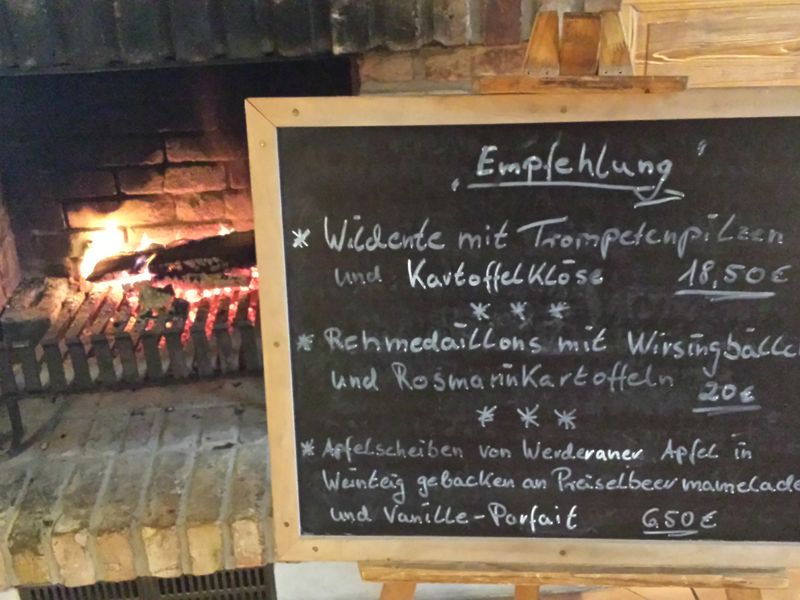 „Empfehlung"
* Wildente mit Trompetenpilzen
und Kartoffelklöse 18,50€
* * *
* Rehmedaillons mit Wirsingbällch
und Rosmarinkartoffeln 20€
* * *
* Apfelscheiben von Werderaner Apfel in
Weinteig gebacken an Preiselbeermamelade
und Vanille-Parfait 6,50€